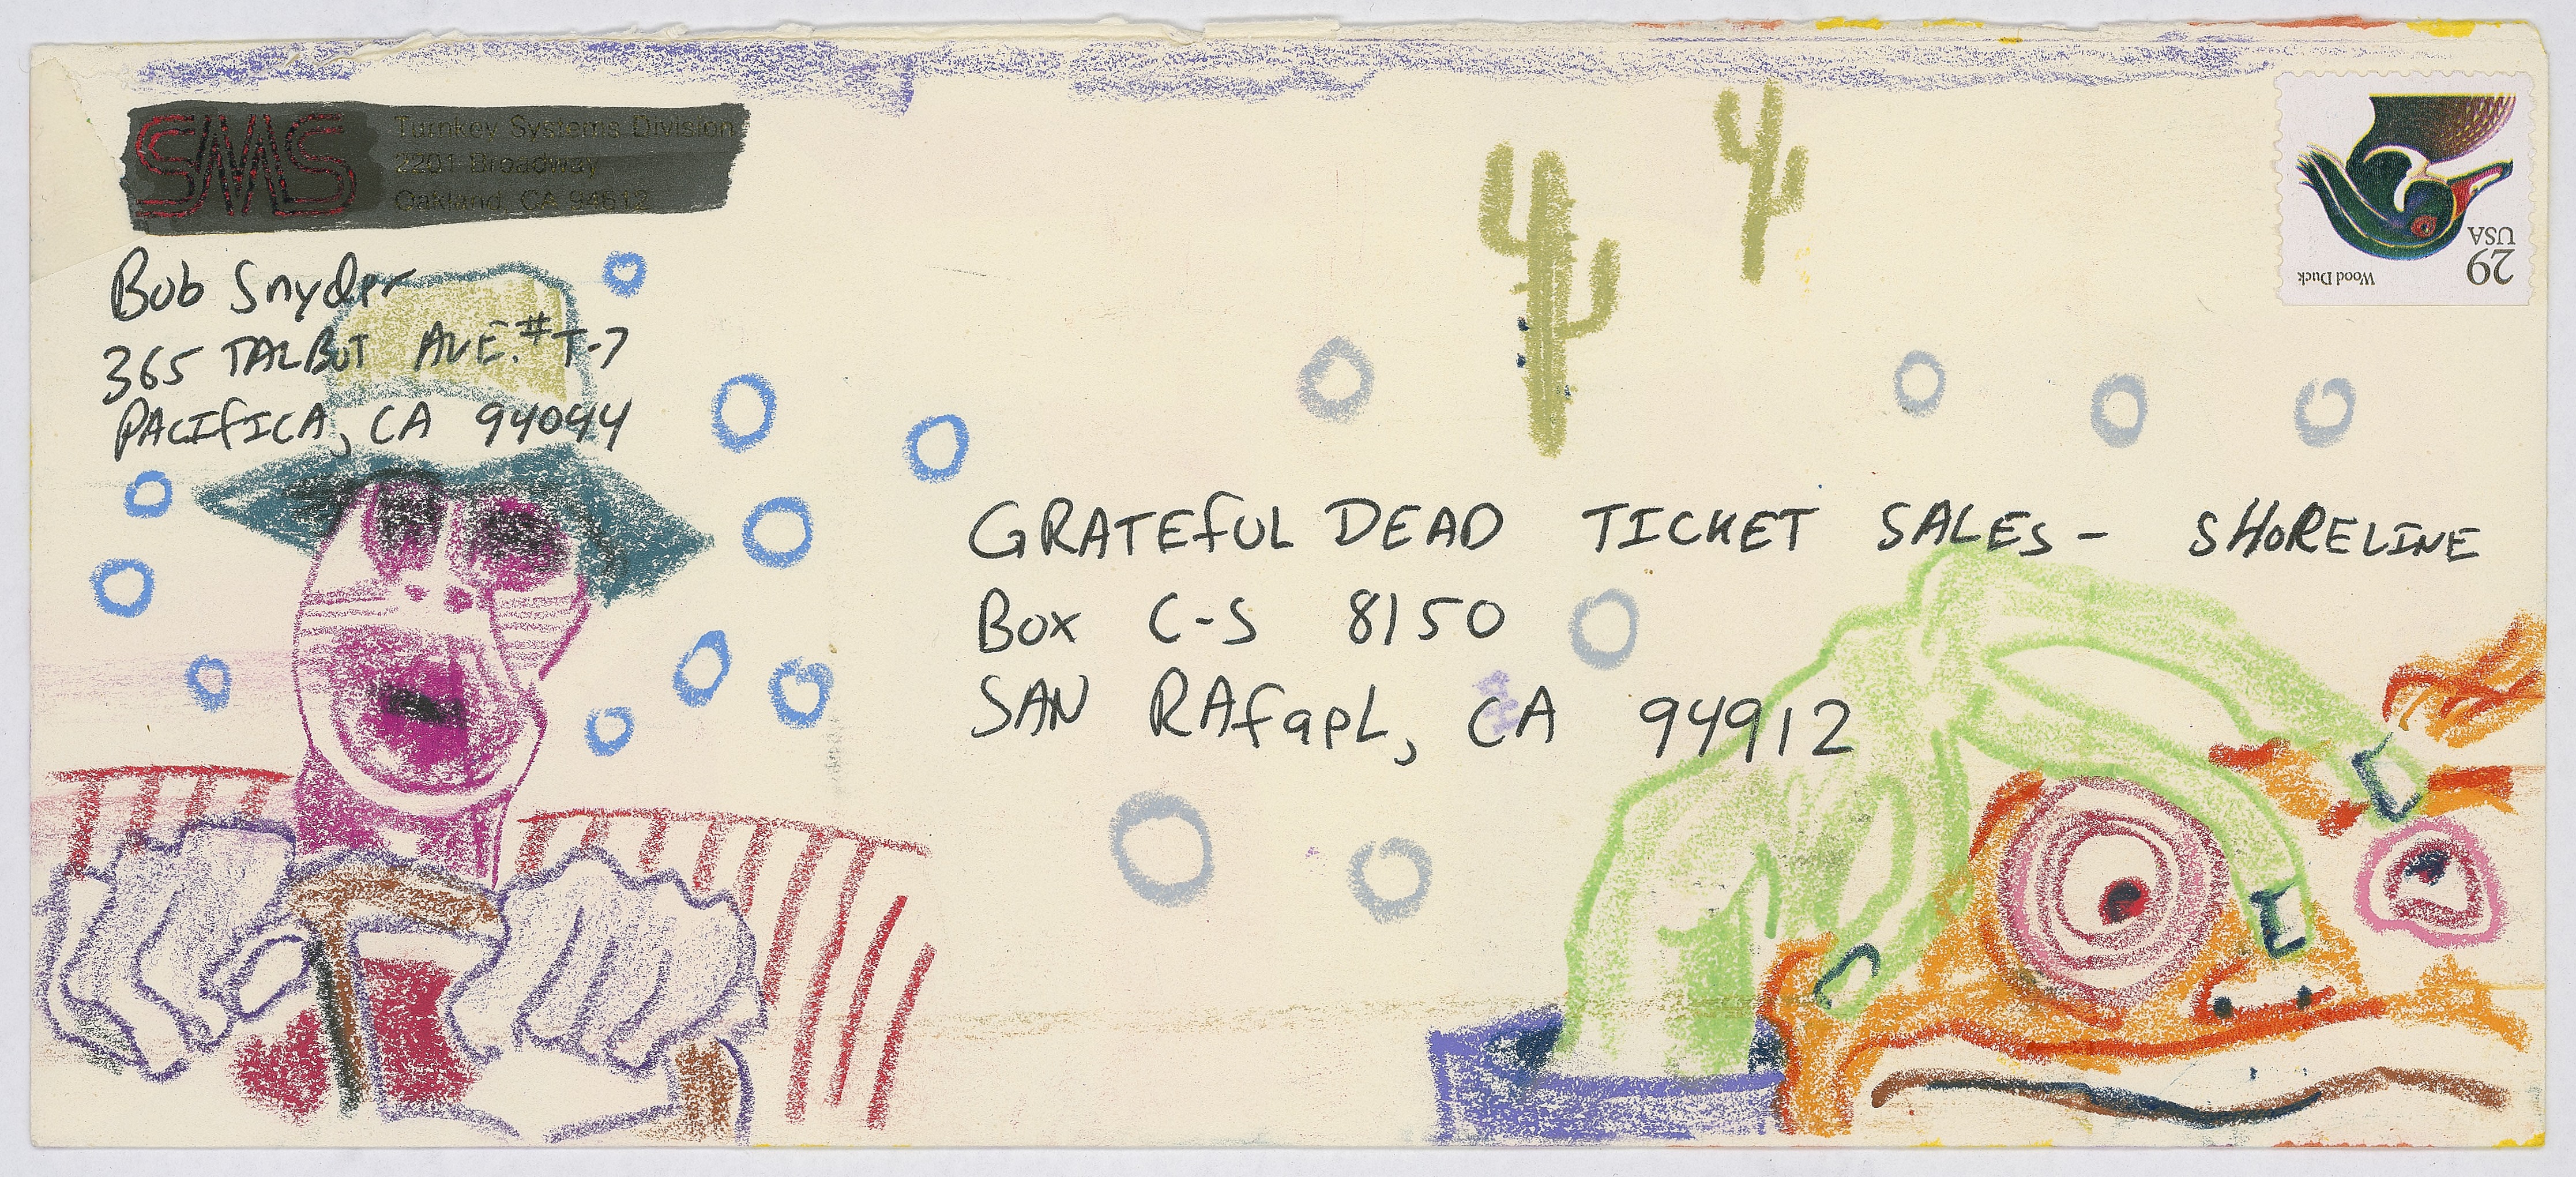 SMS
Turnkey Systems Division
2201 Broadway
Oakland, CA 94612
Bob Snyder
365 TALBUT AVE. #T-7
PACIFICA, CA 94044
Wood Duck
29
USA
GRATEFUL DEAD TICKET SALES - SHORELINE
Box C-S 8150
SAN RAfaeL, CA 94912